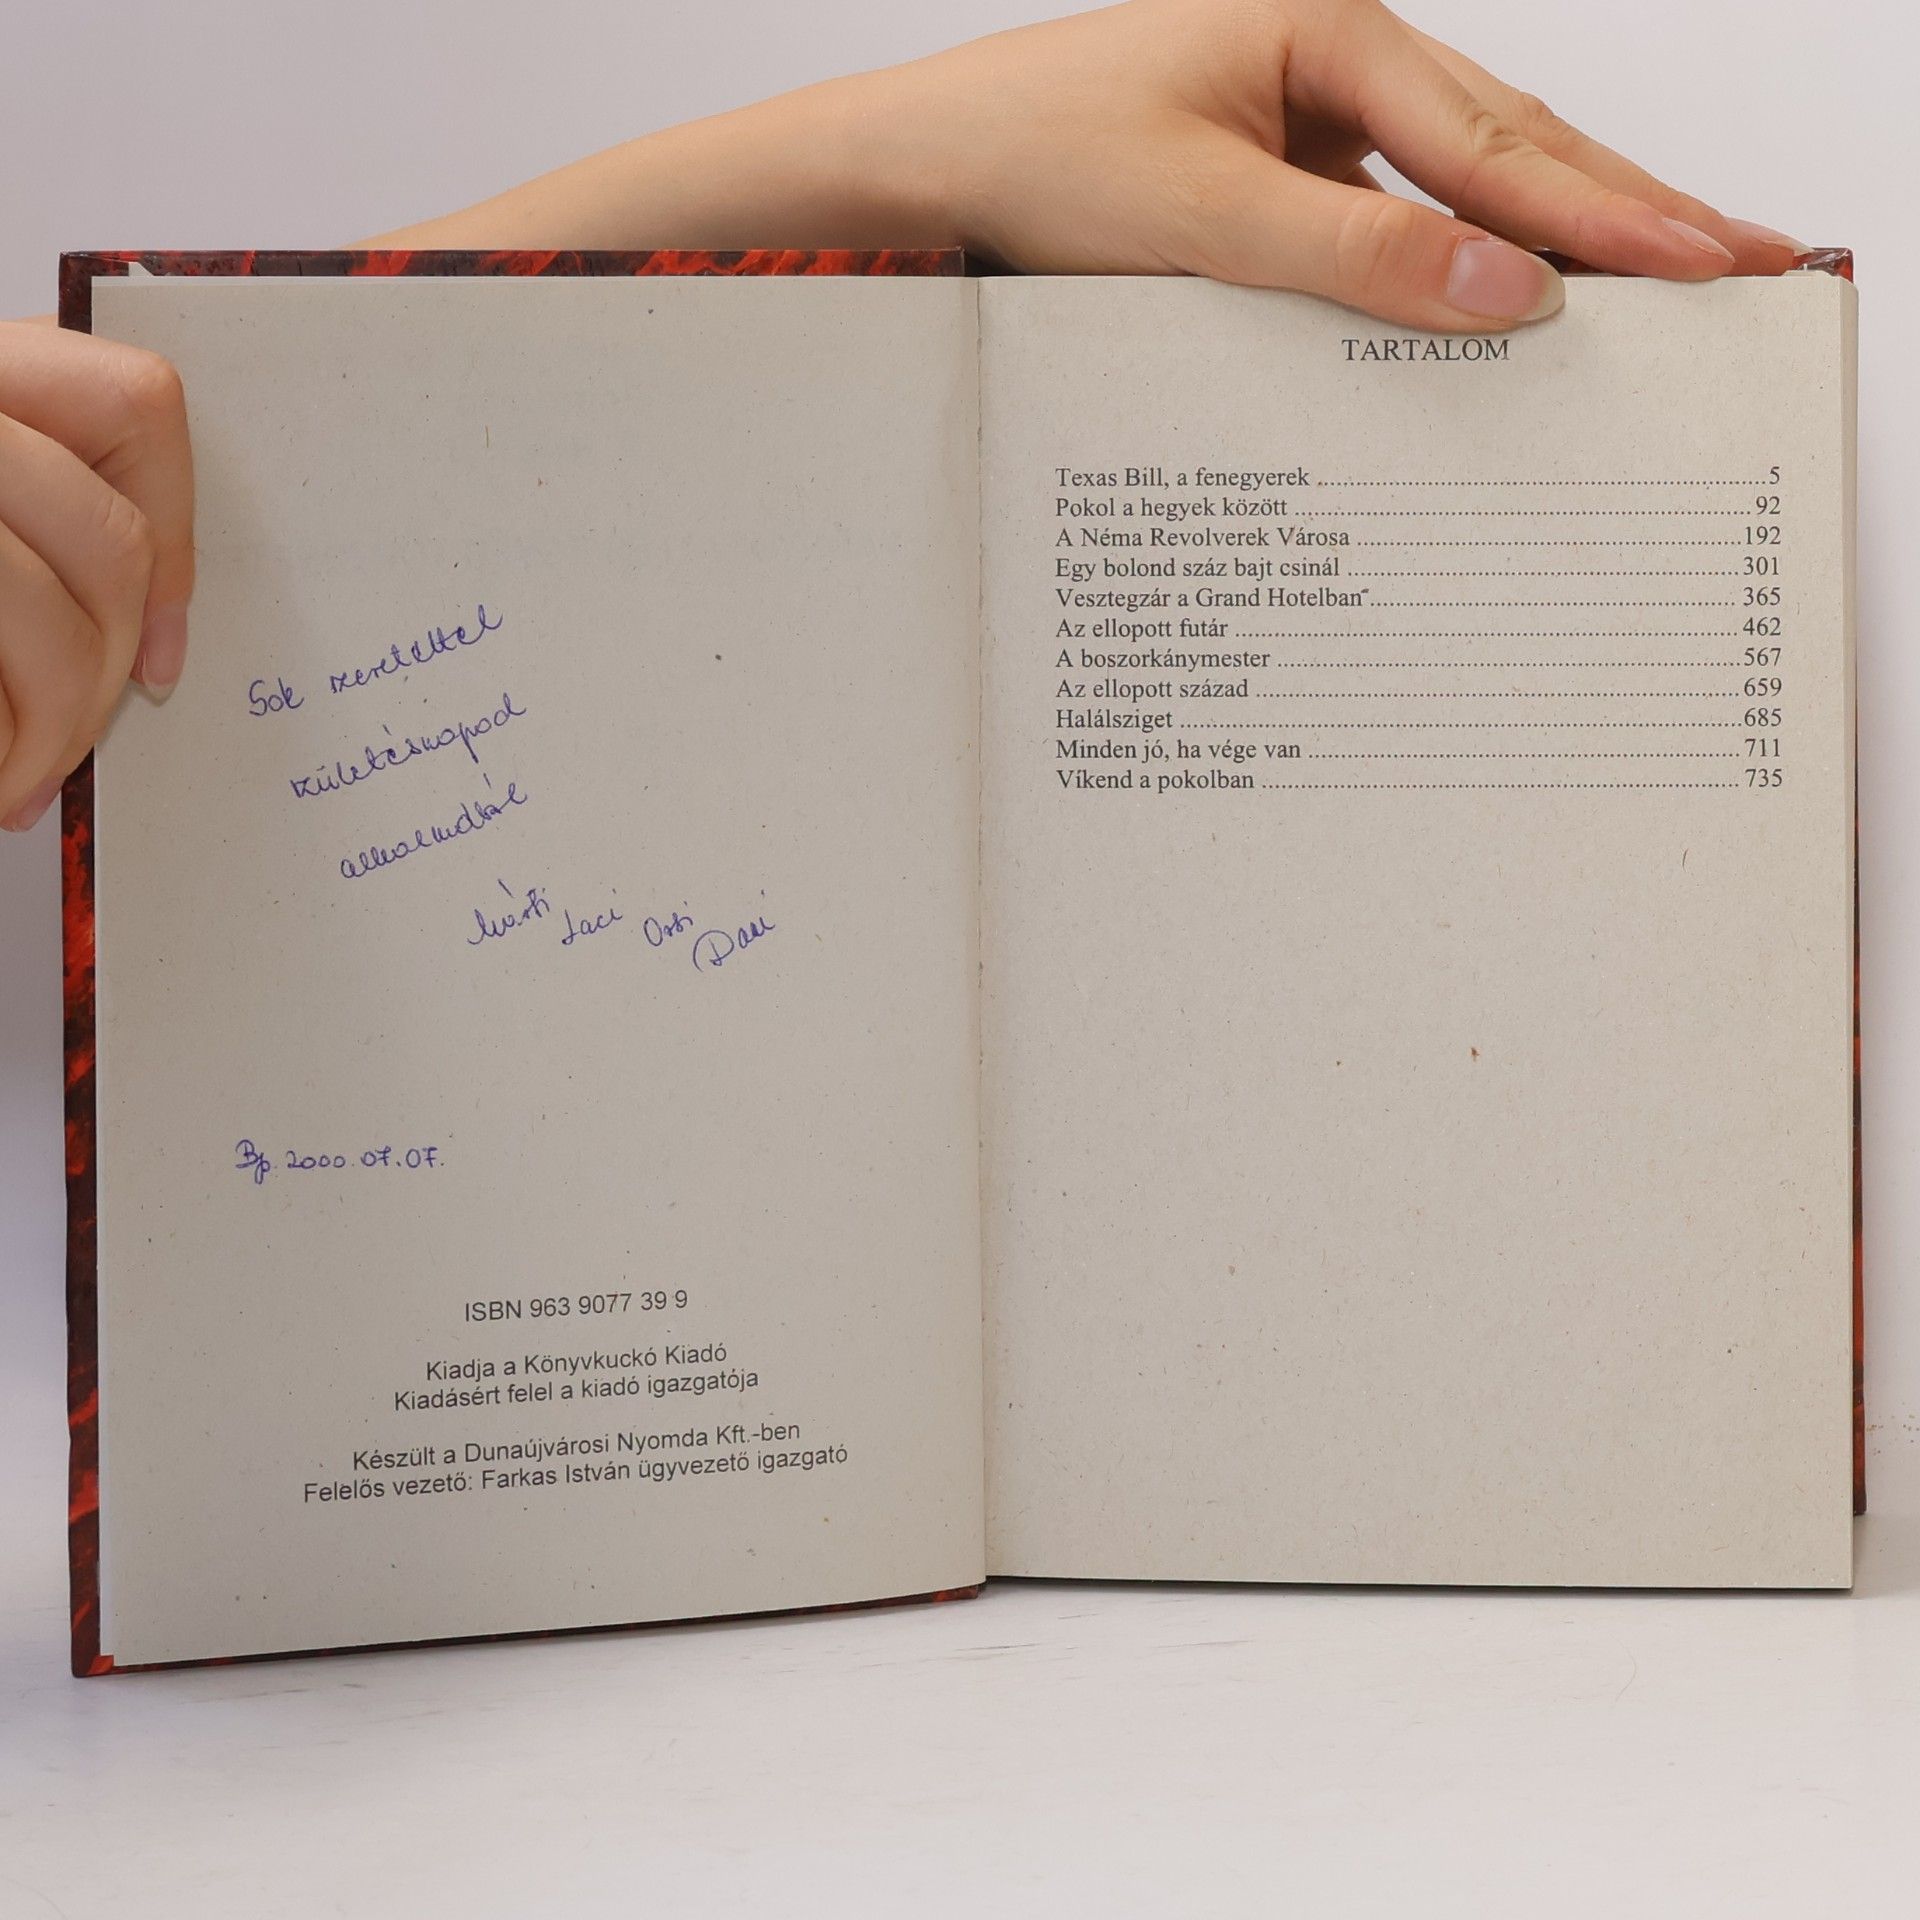 Sok szeretettel
születésnapod
alkalmából
Márti Laci Orsi Dani
Bp. 2000.07.07.
ISBN 963 9077 39 9
Kiadja a Könyvkuckó Kiadó
Kiadásért felel a kiadó igazgatója
Készült a Dunaújvárosi Nyomda Kft.-ben
Felelős vezető: Farkas István ügyvezető igazgató
TARTALOM
Texas Bill, a fenegyerek ... 5
Pokol a hegyek között ... 92
A Néma Revolverek Városa ... 192
Egy bolond száz bajt csinál ... 301
Vesztegzár a Grand Hotelban ... 365
Az ellopott futár ... 462
A boszorkánymester ... 567
Az ellopott század ... 659
Halálsziget ... 685
Minden jó, ha vége van ... 711
Víkend a pokolban ... 735